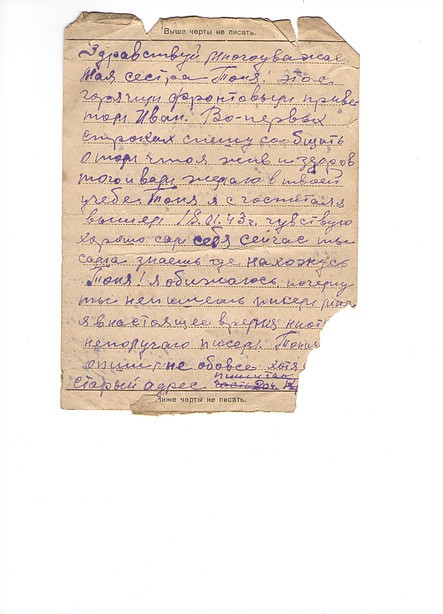 Выше черты не писать.
Здравствуй многоуважае
мая сестра Тоня! это с
горячим фронтовым приве
том Иван. Во-первых
строках спешу сообщать
о том что я жив и здоров
того и вам желаю в твоей
учебе. Тоня я с госпиталя
вышел 18.01.43 г. чувствую
хорошо сам себя сейчас ты
сама знаешь где нахожусь
Тоня! Я обижаюсь почему
ты не пишешь писем
я в настоящее время ниот
неполучаю писем. Тоня
опиши не обовсе хотя
старый адрес
Ниже черты не писать.